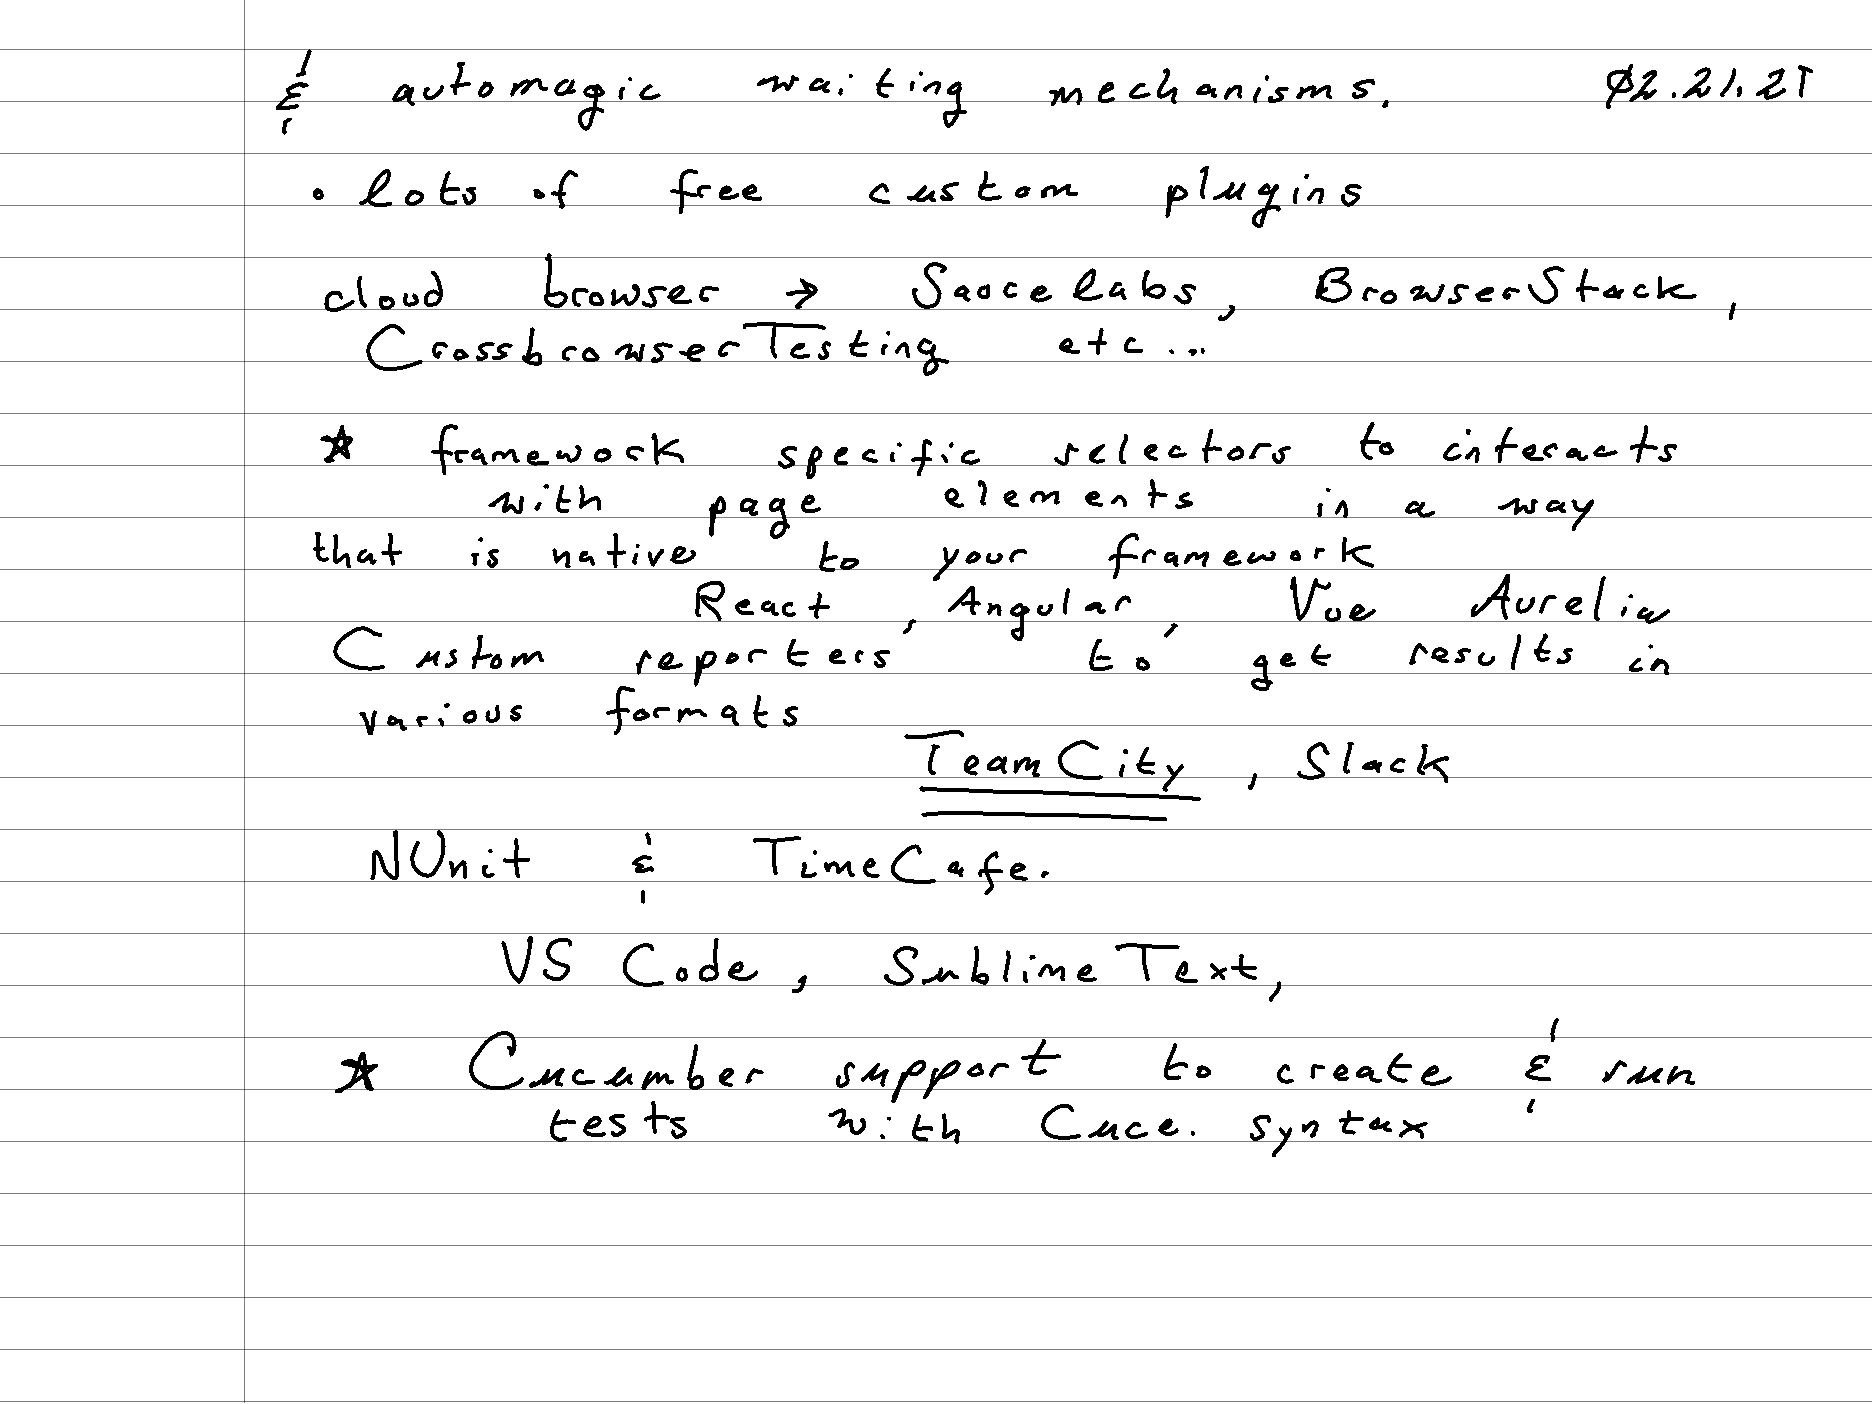 & automagic waiting mechanisms. 02.21.21
• lots of free custom plugins
cloud browser → Saucelabs, BrowserStack,
CrossbrowserTesting etc...
☆ framework specific selectors to interacts
with page elements in a way
that is native to your framework
React, Angular, Vue Aurelia
Custom reporters to get results in
various formats
TeamCity, Slack
NUnit & TimeCafe.
VS Code, SublimeText,
☆ Cucumber support to create & run
tests with Cuce. syntax